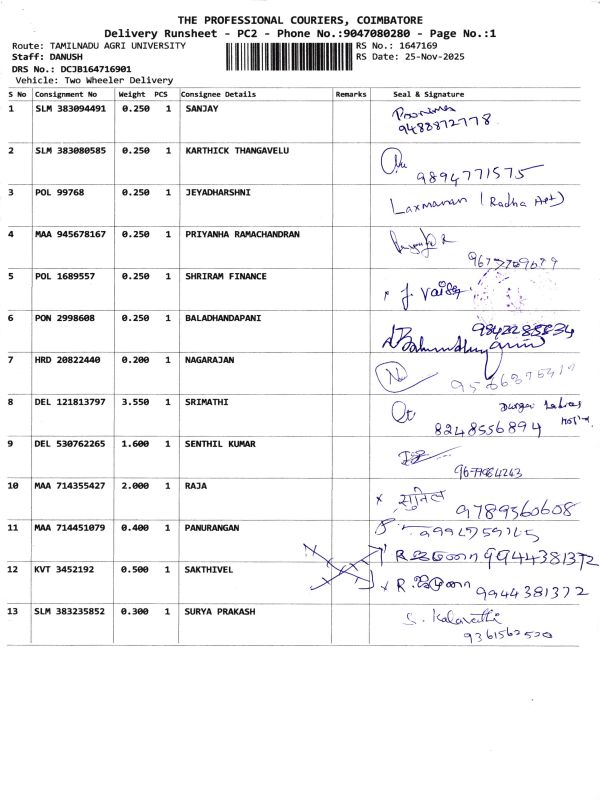 THE PROFESSIONAL COURIERS, COIMBATORE
Delivery Runsheet - PC2 - Phone No.:9047080280 - Page No.:1
Route: TAMILNADU AGRI UNIVERSITY RS No.: 1647169
Staff: DANUSH RS Date: 25-Nov-2025
DRS No.: DCJB164716901
Vehicle: Two Wheeler Delivery
S No Consignment No Weight PCS Consignee Details Remarks Seal & Signature
1 SLM 383094491 0.250 1 SANJAY Poornima
9488872778
2 SLM 383080585 0.250 1 KARTHICK THANGAVELU
9894771575
3 POL 99768 0.250 1 JEYADHARSHNI
Laxmanan (Radha Apt)
4 MAA 945678167 0.250 1 PRIYANHA RAMACHANDRAN
5 POL 1689557 0.250 1 SHRIRAM FINANCE
x J. Vaish
6 PON 2998608 0.250 1 BALADHANDAPANI
7 HRD 20822440 0.200 1 NAGARAJAN
N
8 DEL 121813797 3.550 1 SRIMATHI
8248556894
9 DEL 530762265 1.600 1 SENTHIL KUMAR
10 MAA 714355427 2.000 1 RAJA
x सुनिल 9789560608
11 MAA 714451079 0.400 1 PANURANGAN
9944381372
12 KVT 3452192 0.500 1 SAKTHIVEL
9944381372
13 SLM 383235852 0.300 1 SURYA PRAKASH S. Kalavathi
9361562520